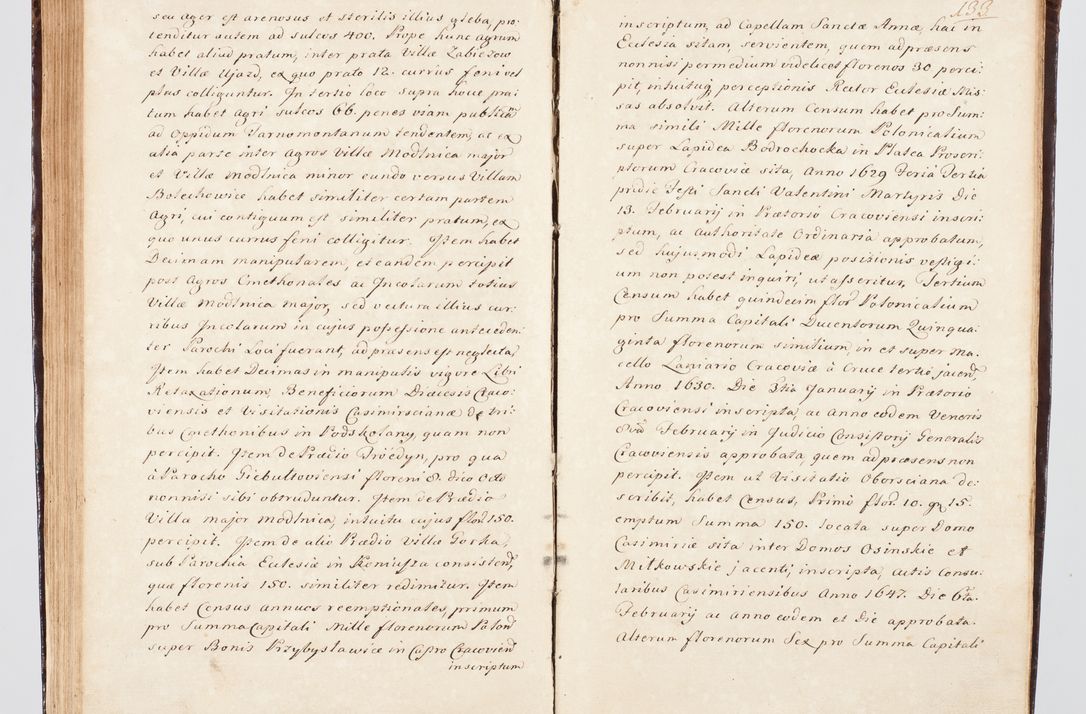 seu ager est arenosus et sterilis illius gleba, pro:
tenditur autem ad sulcos 400. Prope hunc agrum
habet aliud pratum, inter prata Villæ Zabiezow
et Villæ Ujazd, ex quo prato 12. currus fœni vel
plus colliguntur. In tertio loco supra hocce pra:
tum habet Agri sulcos 66. penes viam publicam
ad Oppidum Tarnomontanum tendentem, at ex
alia parte inter Agros Villæ Modlnica major
et Villæ Modlnica minor eundo versus Villam
Bolechowice habet similiter certam partem
Agri, cui contiguum est similiter pratum, ex
quo unus currus fœni colligitur. Item habet
Decimam manipularem, et eandem percipit
post Agros Cmethonales ac Incolarum totius
Villæ Modlnica major, sed vectura illius cur:
ribus Incolarum in cujus possessione anteceden:
ter Parochi Loci fuerant, ad præsens est neglecta,
Item habet Decimas in manipulis vigore Libri
Retaxationum, Beneficiorum Diœcesis Craco:
viensis et Visitationis Casimirscianæ De tri:
bus Cmethonibus in Podskalany, quam non
percipit. Item de Prædio Troiedyn, pro qua
à Parocho Giebultoviensi floreni 8. dico Octo
nonnisi sibi obtruduntur. Item de Prædio
Villa major Modlnica, intuitu cujus flor. 150.
percipit. Item de alio Prædio Villa Gorka,
sub Parochia Ecclesiæ in Koniusza consistend.
quæ florenis 150. similiter redimitur. Item
habet Census annuos reemptionales, primum
pro Summa Capitali Mille florenorum Polond.
super Bonis Przybyslawice in Capro Cracoviend.
inscriptum
133
inscriptum, ad Capellam Sanctæ Annæ, hac in
Ecclesia sitam, servientem, quem ad præsens
nonnisi per medium videlicet florenos 30 perci:
pit, intuituq perceptionis Rector Ecclesiæ Mis:
sas absolvit. Alterum Censum habet pro Sum:
ma simili Mille florenorum Polonicalium
super Lapidea Bodrochocka in Platea Proscri:
ptorum Cracoviæ sita, Anno 1629 Feria Tertia
pridie Festi Sancti Valentini Martyris Die
13. Februarij in Prætorio Cracoviensi inscri:
ptum, ac Authoritate Ordinaria approbatum,
sed hujusmodi Lapideæ posizionis vestigi:
um non potest inquiri, ut asseritur, Tertium
Censum habet quindecim flor. Polonicalium
pro Summa Capitali Ducentorum Quinqua:
ginta florenorum similium, in et super Ma:
cello Laniario Cracoviæ à Cruce tertio jacend.
Anno 1630. Die 3tia Januarij in Prætorio
Cracoviensi inscripta, ac Anno eodem Veneris
8va Februarij in Judicio Consistorij Generalis
Cracoviensis approbata, quem ad præsens non
percipit. Item ut Visitatio Oborsciana de:
scribit, habet Census, Primò flor. 10. gr 15.
emptum Summa 150. locata super Domo
Casimiriæ sita inter Domos Osinskie et
Milkowskie jacenti, inscripta, Actis Consu:
laribus Casimiriensibus Anno 1647. Die 6ta
Februarij ac Anno eodem et Die approbata.
Alterum florenorum Sex pro Summa Capitali